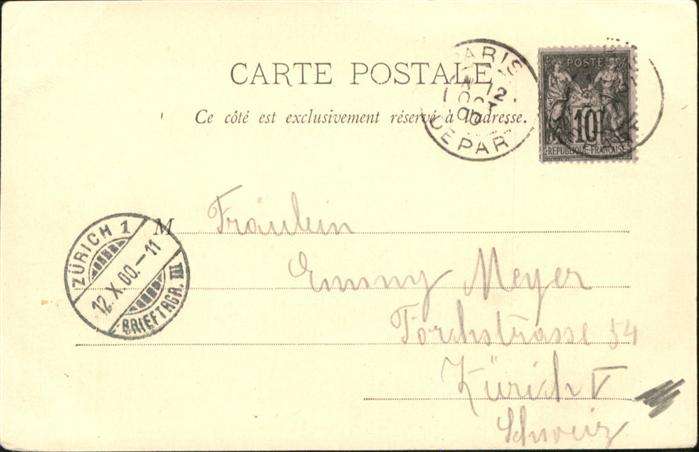 CARTE POSTALE
Ce côté est exclusivement réservé à l'adresse.
PARIS
12
OCT
00
DEPART
POSTE
10
REPUBLIQUE FRANCAISE
ZÜRICH 1
12.X.00.-11
BRIEFTRGR. III
M
Fräulein
Emmy Meyer
Forchstrasse 54
Zürich V
Schweiz